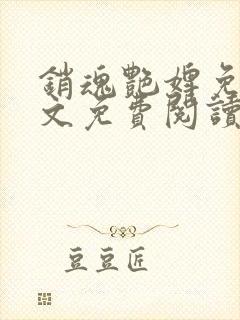 銷魂艷婢免
文免費閱讀
豆豆匠